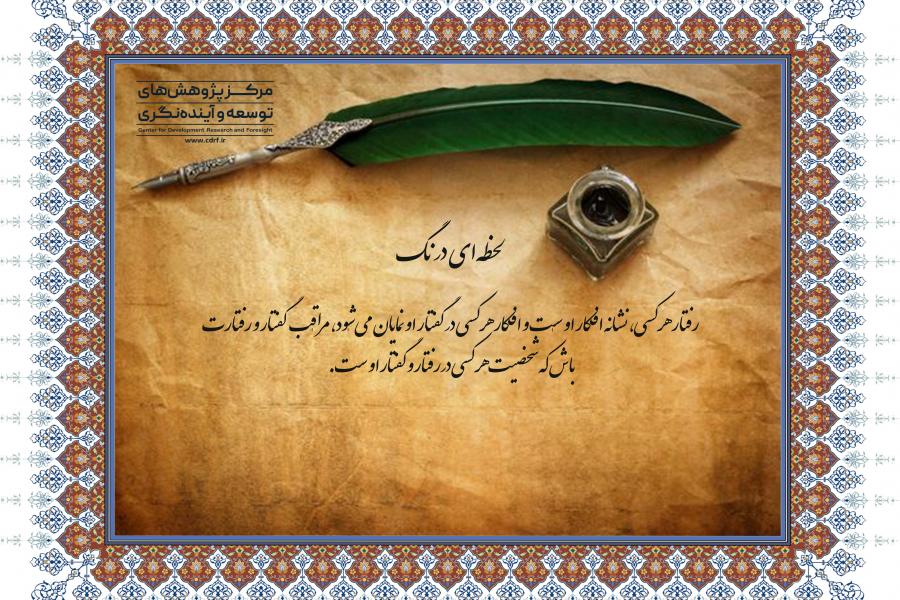 مرکز پژوهش‌های
توسعه و آینده‌نگری
Center for Development Research and Foresight
www.cdrf.ir
لحظه ای درنگ
رفتار هر کسی، نشانه افکار اوست و افکار هر کسی در گفتار او نمایان می شود، مراقب گفتار و رفتارت
باش که شخصیت هر کسی در رفتار و گفتار اوست.